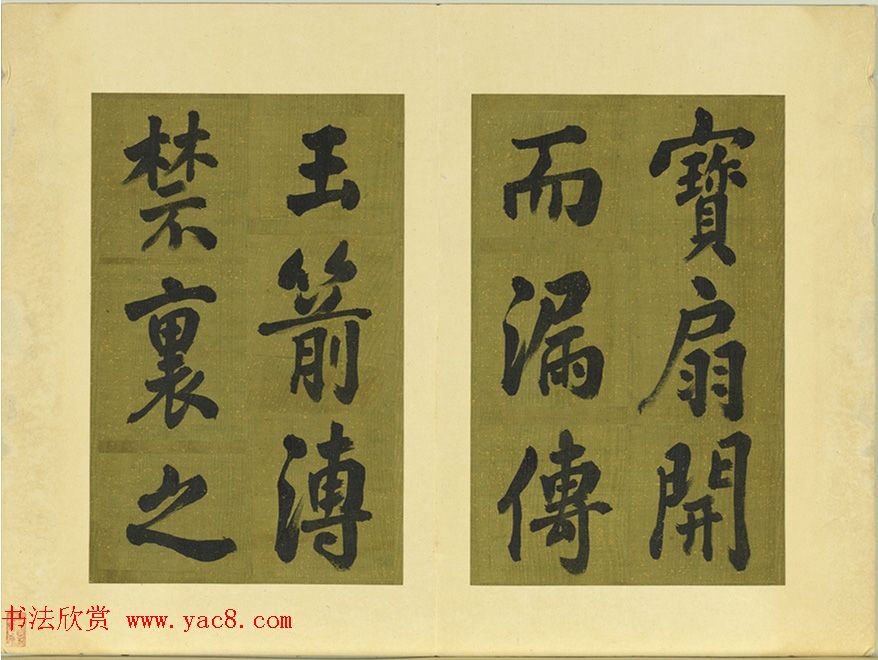 寶扇開
而漏傳
玉箭溥
禁裏之
书法欣赏 www.yac8.com